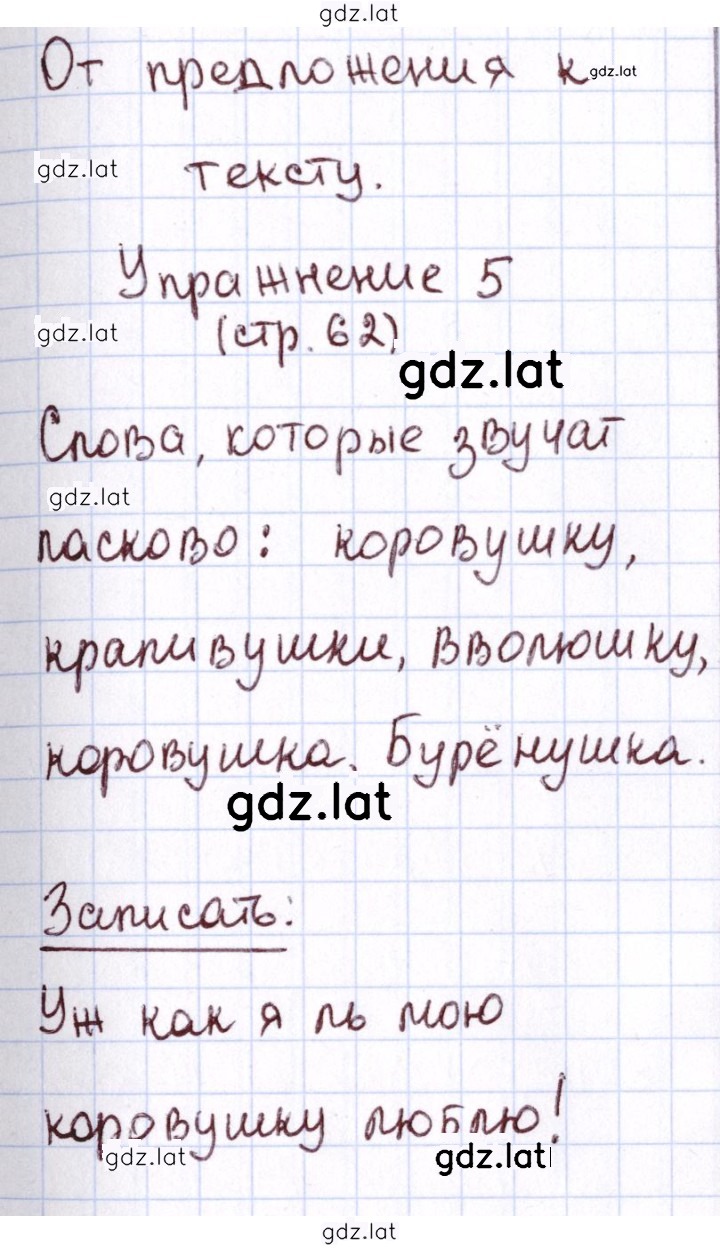 gdz.lat
От предложения к gdz.lat
gdz.lat тексту.
Упражнение 5
gdz.lat (стр. 62)
gdz.lat
Слова, которые звучат
gdz.lat
ласково: коровушку,
крапивушки, вволюшку,
коровушка. Бурёнушка.
gdz.lat
Записать:
Уж как я ль мою
коровушку люблю!
gdz.lat gdz.lat
gdz.lat